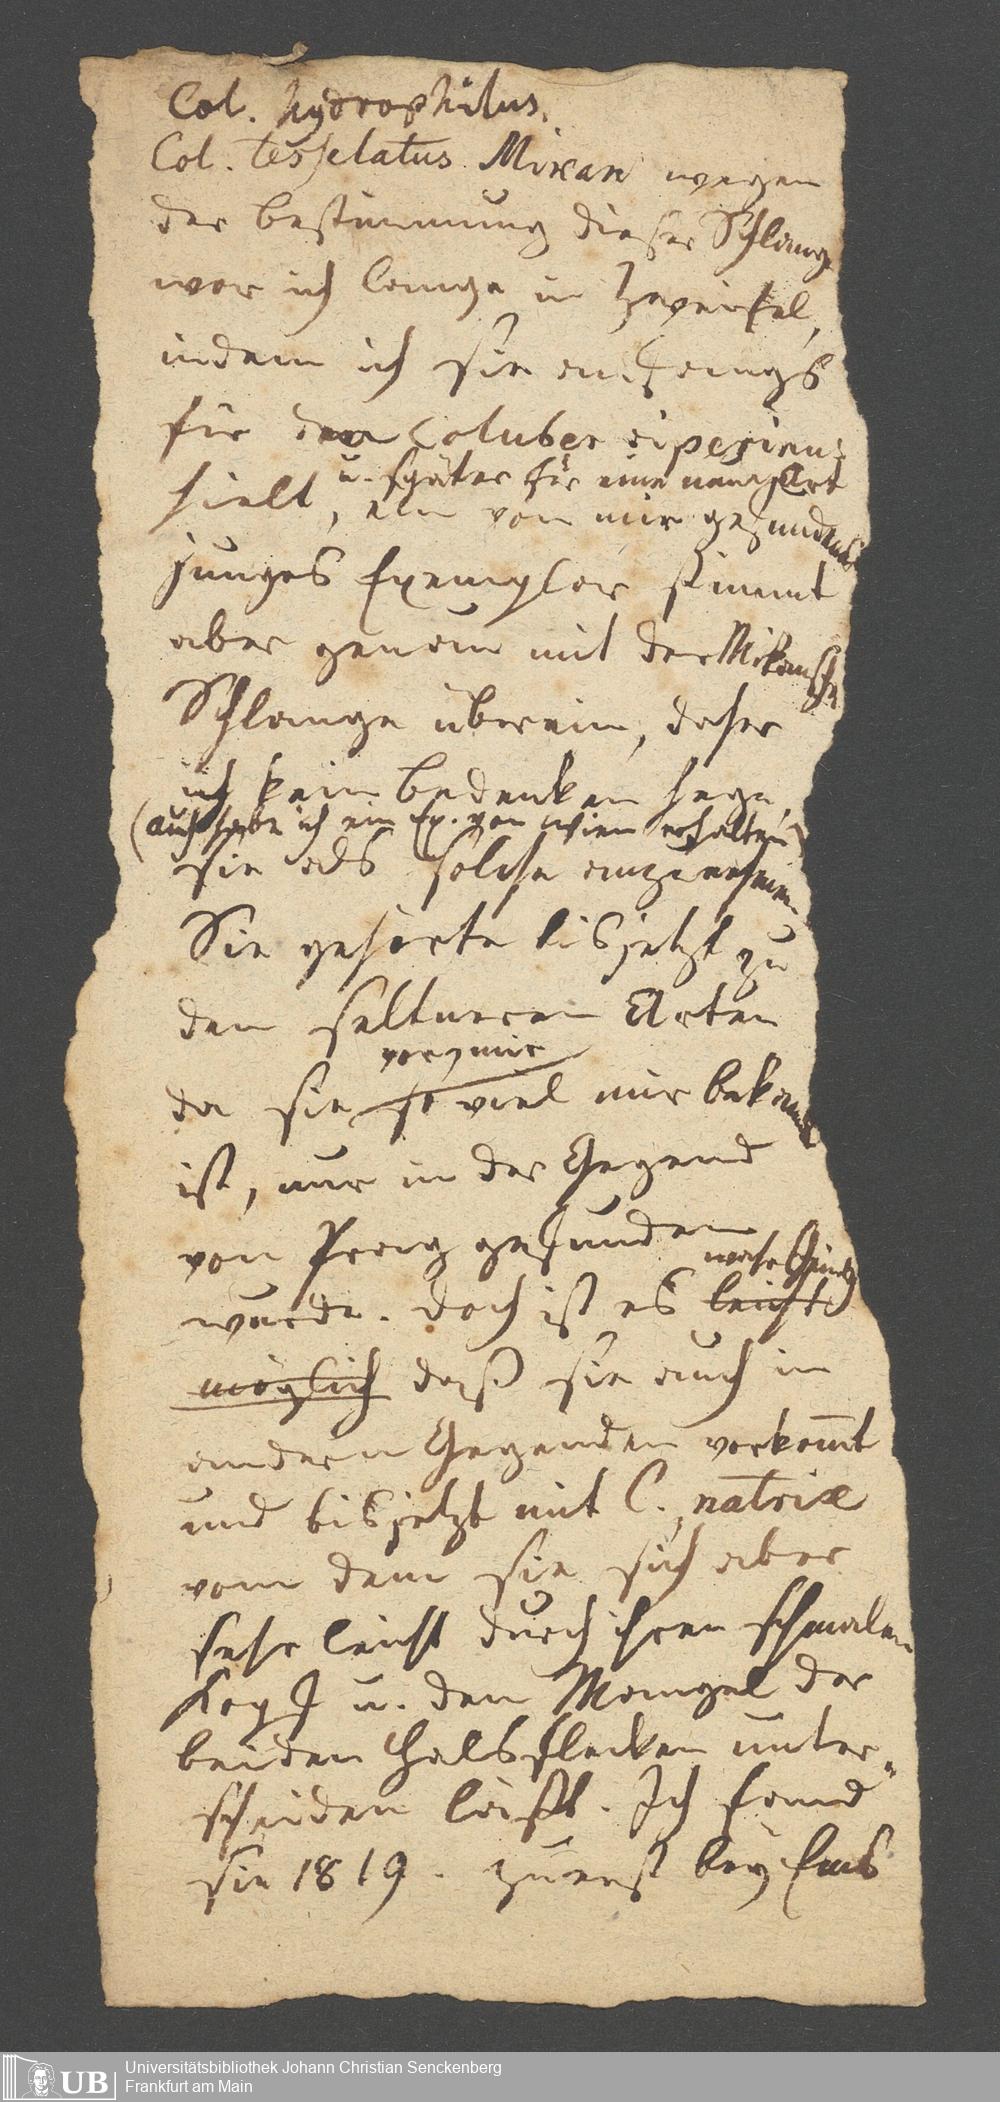 Col. hydrophilus.
Col. tesselatus Mikan wegen
der Bestimmung dieser Schlange
war ich lange in Zweifel,
indem ich sie anfangs
für den Coluber
u. später für eine neue Art
hielt, ein von mir gefundenes
junges Exemplar stimmt
aber genau mit der Mikanschen
Schlange überein, daher
ich kein Bedenken hege,
(auch habe ich ein Ex. von Wien erhalten)
sie als solche anzunehmen.
Sie gehörte bis jetzt zu
den seltneren Arten
vor mir
da sie so viel mir bekannt
ist, nur in der Gegend
von Prag gefunden
wahrscheinlich
wurde. Doch ist es leicht
möglich daß sie auch in
andern Gegenden vorkommt
und bis jetzt mit C. natrix
von dem sie sich aber
sehr leicht durch ihren schmalen
Kopf u. den Mangel der
beiden Halsflecken unter-
scheiden läßt. Ich fand
sie 1819. zuerst bey Ems
UB
Universitätsbibliothek Johann Christian Senckenberg
Frankfurt am Main